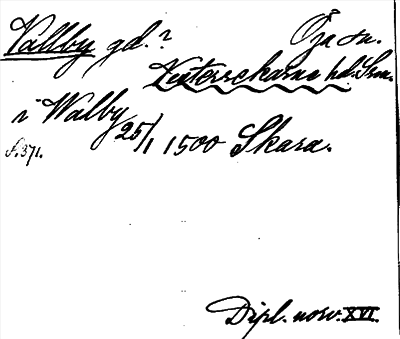 Vallby gd.? Öja sn.
Vesterrekarne hd. Srm.
i Walby 25/1 1500 Skara.
s. 371.
Dipl. norv. XVI.